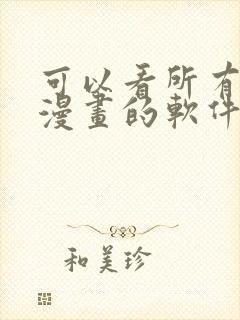 可以看所有
漫畫的軟件
和美珍